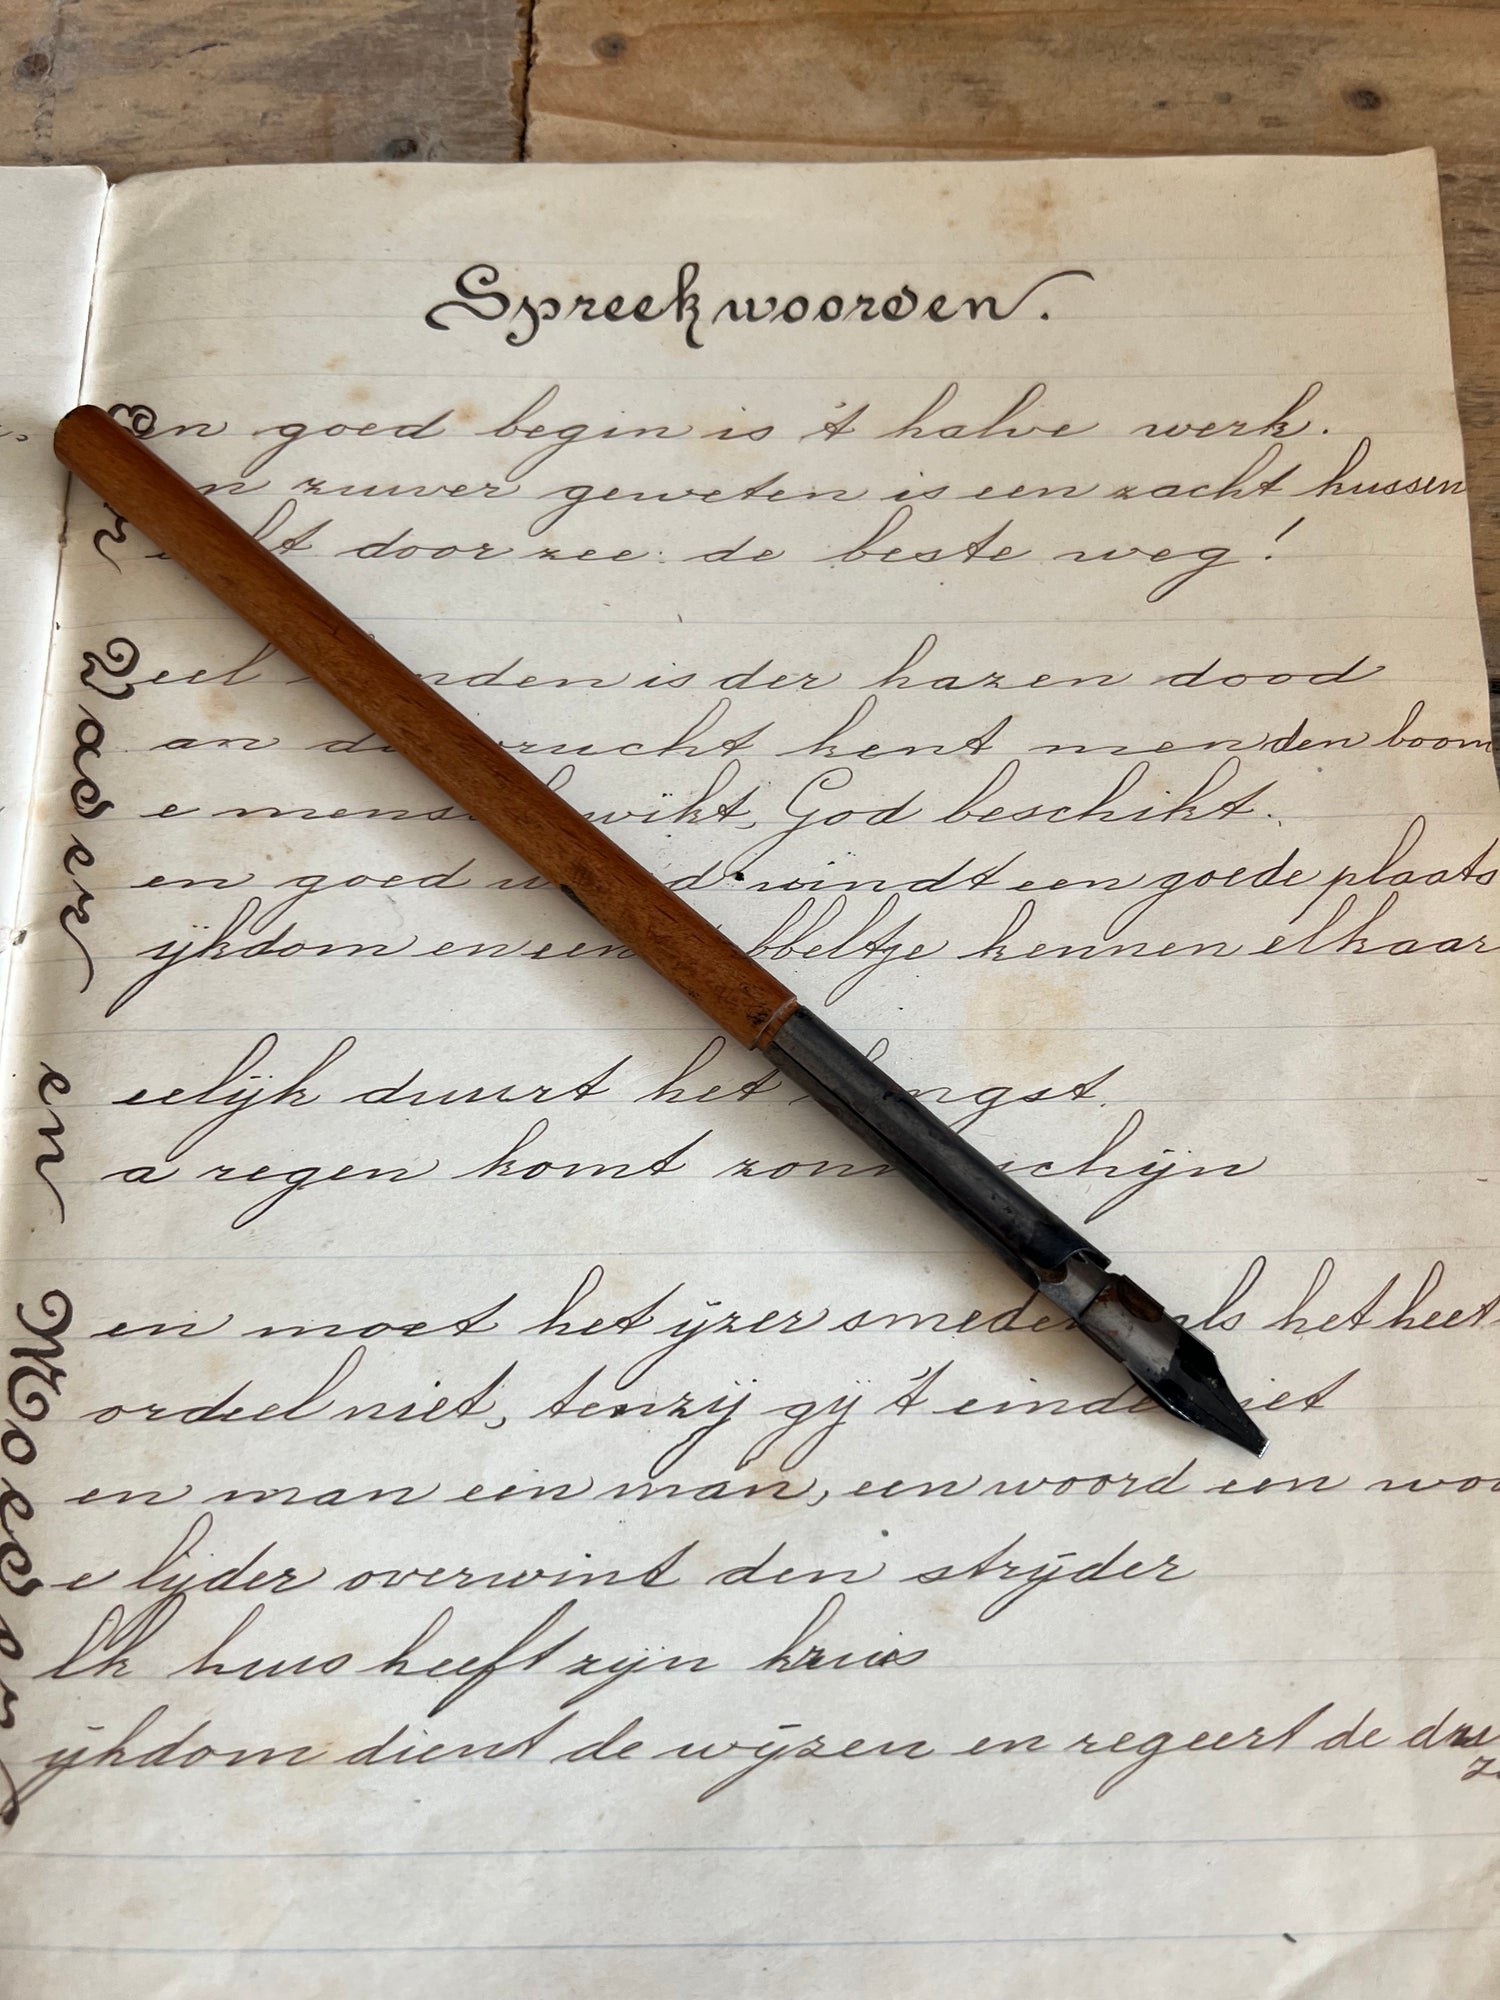 Spreekwoorden.
Een goed begin is 't halve werk.
zuiver geweten is een zacht kussen
door zee: de beste weg!
Veel is der hazen dood
aan vrucht kent men den boom
de wikt, God beschikt.
een goed vindt een goede plaats
rijkdom en een kennen elkaar
duurt het
na regen komt
Men moet het ijzer smeden als het heet
oordeel niet, tenzij gij 't einde
een man een man, een woord een
de lijder overwint den strijder
elk huis heeft zijn kruis
rijkdom dient de wijzen en regeert de